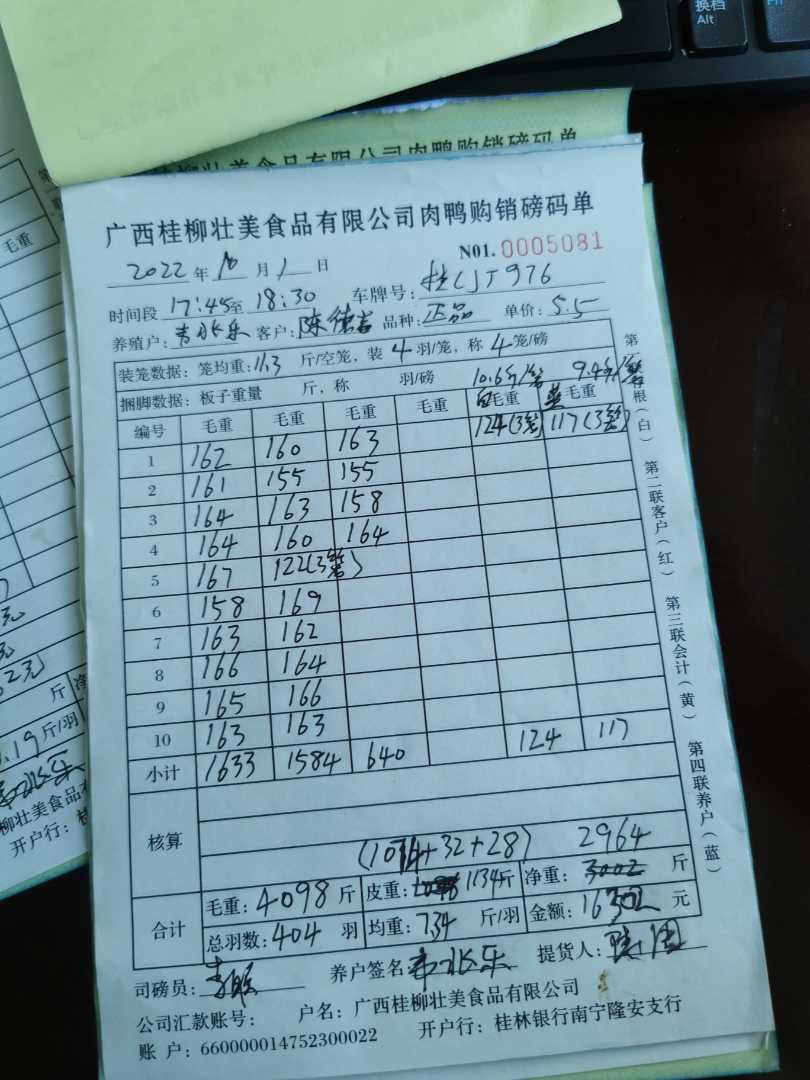 换档
Alt
Fn
壮美食品有限公司肉鸭购销磅码单
毛重
广西桂柳壮美食品有限公司肉鸭购销磅码单
N01. 0005081
2022 年 10 月 1 日
时间段 17:45 至 18:30 车牌号: 桂CJT976
养殖户: 韦水乐 客户: 陈德吉 品种: 正品 单价: 5.5
装笼数据: 笼均重: 11.3 斤/空笼, 装 4 羽/笼, 称 4 笼/磅
捆脚数据: 板子重量 斤, 称 羽/磅 10.6斤/笼 9.4斤/笼
编号 毛重 毛重 毛重 毛重 毛重 毛重
1 162 160 163 124(3笼) 117(3笼)
2 161 155 155
3 164 163 158
4 164 160 164
5 167 122(3笼)
6 158 169
7 163 162
8 166 164
9 165 166
10 163 163
小计 1633 1584 640 124 117
核算
(1074+32+28) 2964
合计
毛重: 4098 斤 皮重: 1134斤 净重: 3002 斤
总羽数: 404 羽 均重: 7.34 斤/羽 金额: 16302 元
司磅员: 养户签名 韦水乐 提货人:
公司汇款账号: 户名: 广西桂柳壮美食品有限公司
账 户: 660000014752300022 开户行: 桂林银行南宁隆安支行
根(白) 第二联客户(红) 第三联会计(黄) 第四联养户(蓝)
元
2元)
斤 净
.19 斤/羽
柳壮美食品
开户行: